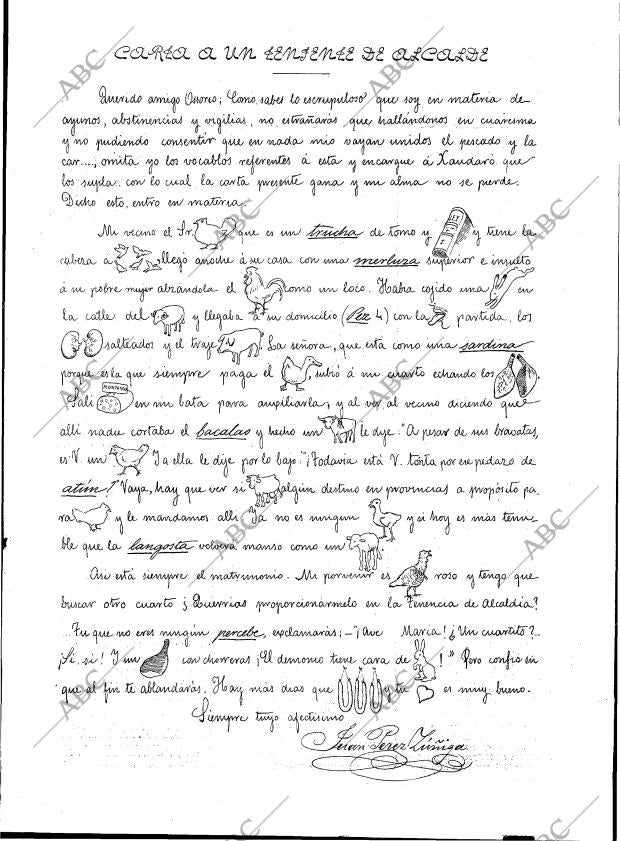 CARTA A UN TENIENTE DE ALCALDE
Querido amigo Ossorio; Como sabes lo escrupuloso que soy en materia de
ayunos, abstinencias y vigilias, no extrañarás que hallándonos en cuaresma
y no pudiendo consentir que en nada mio vayan unidos el pescado y la
car...., omita yo los vocablos referentes á esta y encargue á Xaudaró que
los supla, con lo cual la carta presente gana y mi alma no se pierde.
Dicho esto, entro en materia.
Mi vecino el Sr. que es un trucha de tomo y y tiene la
cabeza á llegó anoche á su casa con una merluza superior e insultó
á su pobre mujer alzándola el como un loco. Había cogido una en
la calle del y llegaba á su domicilio (Pez 4) con la partida, los
salteados y el traje La señora, que está como una sardina
porque es la que siempre paga el subió á mi cuarto echando los
Salí en mi bata para auxiliarla; y al ver al vecino diciendo que
allí nadie cortaba el bacalao y hecho un le dije: "A pesar de sus bravatas,
es V. un Y a ella le dije por lo bajo: "¡Todavía está V. tonta por ese pedazo de
atún? Vaya, hay que ver si algún destino en provincias a propósito pa
ra y le mandamos allí. Ya no es ningún y si hoy es más temi
ble que la langosta volverá manso como un
Así está siempre el matrimonio. Mi porvenir es roso y tengo que
buscar otro cuarto ¿Querrías proporcionármelo en la tenencia de Alcaldía?
...Tu que no eres ningún percebe, exclamarás; –"¡Ave María! ¿Un cuartito?..
¡Si, si! Y un con chorreras ¡El demonio tiene cara de !" Pero confío en
que al fin te ablandarás. Hay más días que y tu es muy bueno.
Siempre tuyo afectísimo
Juan Perez Zúñiga
LEY
MONTANO
ABC